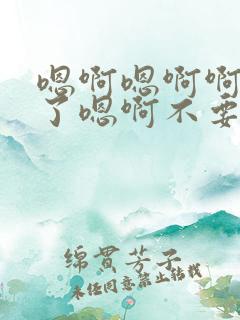 嗯啊嗯啊啊
了嗯啊不要
绵贯芳子
未经同意禁止转载